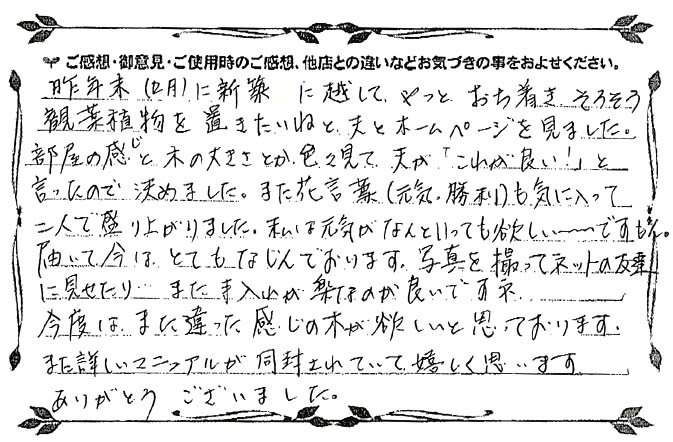 ご感想・御意見・ご使用時のご感想、他店との違いなどお気づきの事をおよせください。
昨年末(12月)に新築 に越して、やっと おち着き そろそろ
観葉植物を 置きたいねと、夫とホームページを見ました。
部屋の感じと 木の大きさとか、色々見て 夫が「これが良い!」と
言ったので 決めました。また花言葉(元気・勝利)も気に入って
二人で盛り上がりました。私は元気がなんといっても欲しい〜〜ですもん。
届いて今は とてもなじんでおります。写真を撮ってネットの友達
に見せたり… また手入れが楽なのが良いですネ。
今度は また違った感じの木が欲しいと思っております。
また詳しいマニュアルが同封されていて 嬉しく思います。
ありがとう ございました。